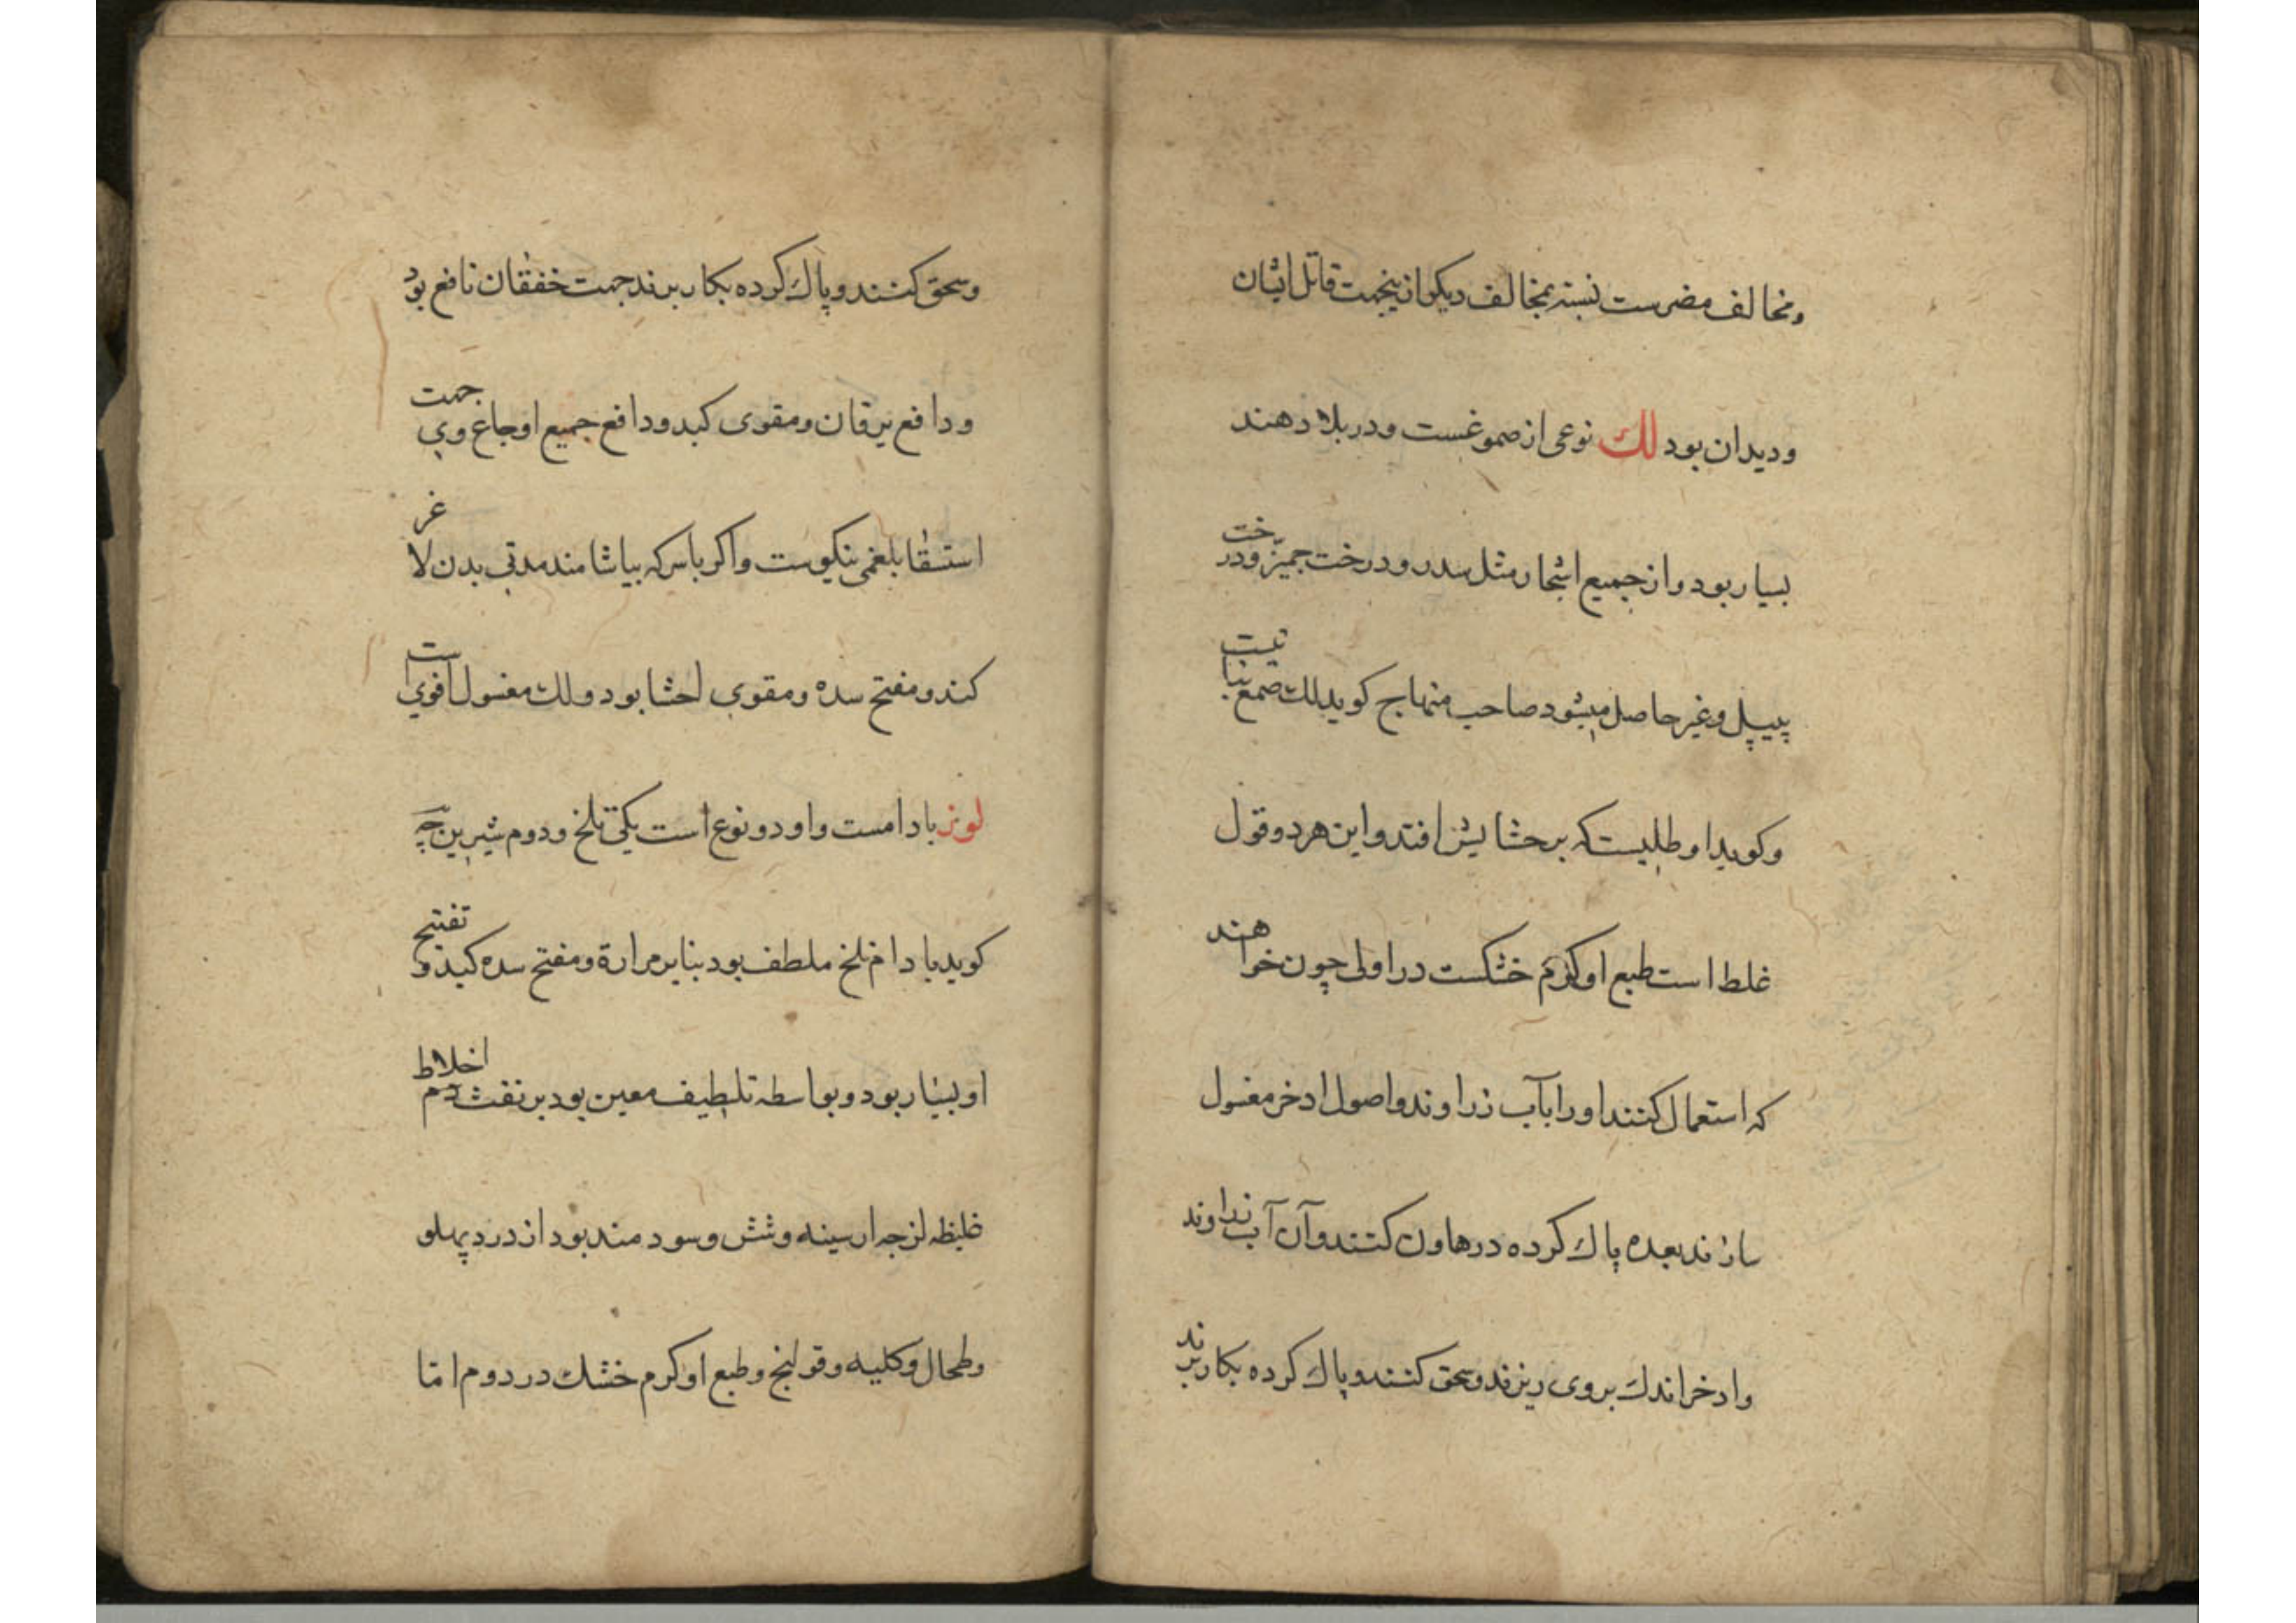 ومخالف مضرست نسبته بمخالف دیکر ازینجهت قاتل ایشان
ودیدان بود لك نوعی از صموغست ودر بلاد هند
بسیار بود واز جمیع اشجار مثل سدر ودرخت جمیز ودرخت
پیپل وغیر حاصل میشود صاحب منهاج کوید لك صمغ نباتیست
وکوید او طلیست که بر حشایش افتد واین هر دو قول
غلط است طبع او کرم خشکست در اولی چون خواهند
که استعمال کنند او را بآب زراوند واصول ادخر مغسول
سازند بعده پاك کرده در هاون کنند وآن آب زراوند
وادخر اندك بروی ریزند وسحق کنند وپاك کرده بکار برند
وسحق کنند وپاك کرده بکار برند جهت خفقان نافع بود
ودافع یرقان ومقوی کبد ودافع جمیع اوجاع وی جهت
استسقا بلغمی نیکوست واکر باسرکه بیاشامند مدتی بدن لاغر
کند ومفتح سده ومقوی احشا بود ولك مغسول اقوی است
لوز بادامست واو دو نوع است یکی تلخ ودوم شیرین
کوید بادام تلخ ملطف بود بنابر مرارة ومفتح سده کبد وتفتیح
او بسیار بود وبواسطه تلطیف معین بود بر نفث دم اخلاط
غلیظه لزجه از سینه وشش وسودمند بود از درد پهلو
وطحال وکلیه وقولنج وطبع او کرم خشك در دوم اما